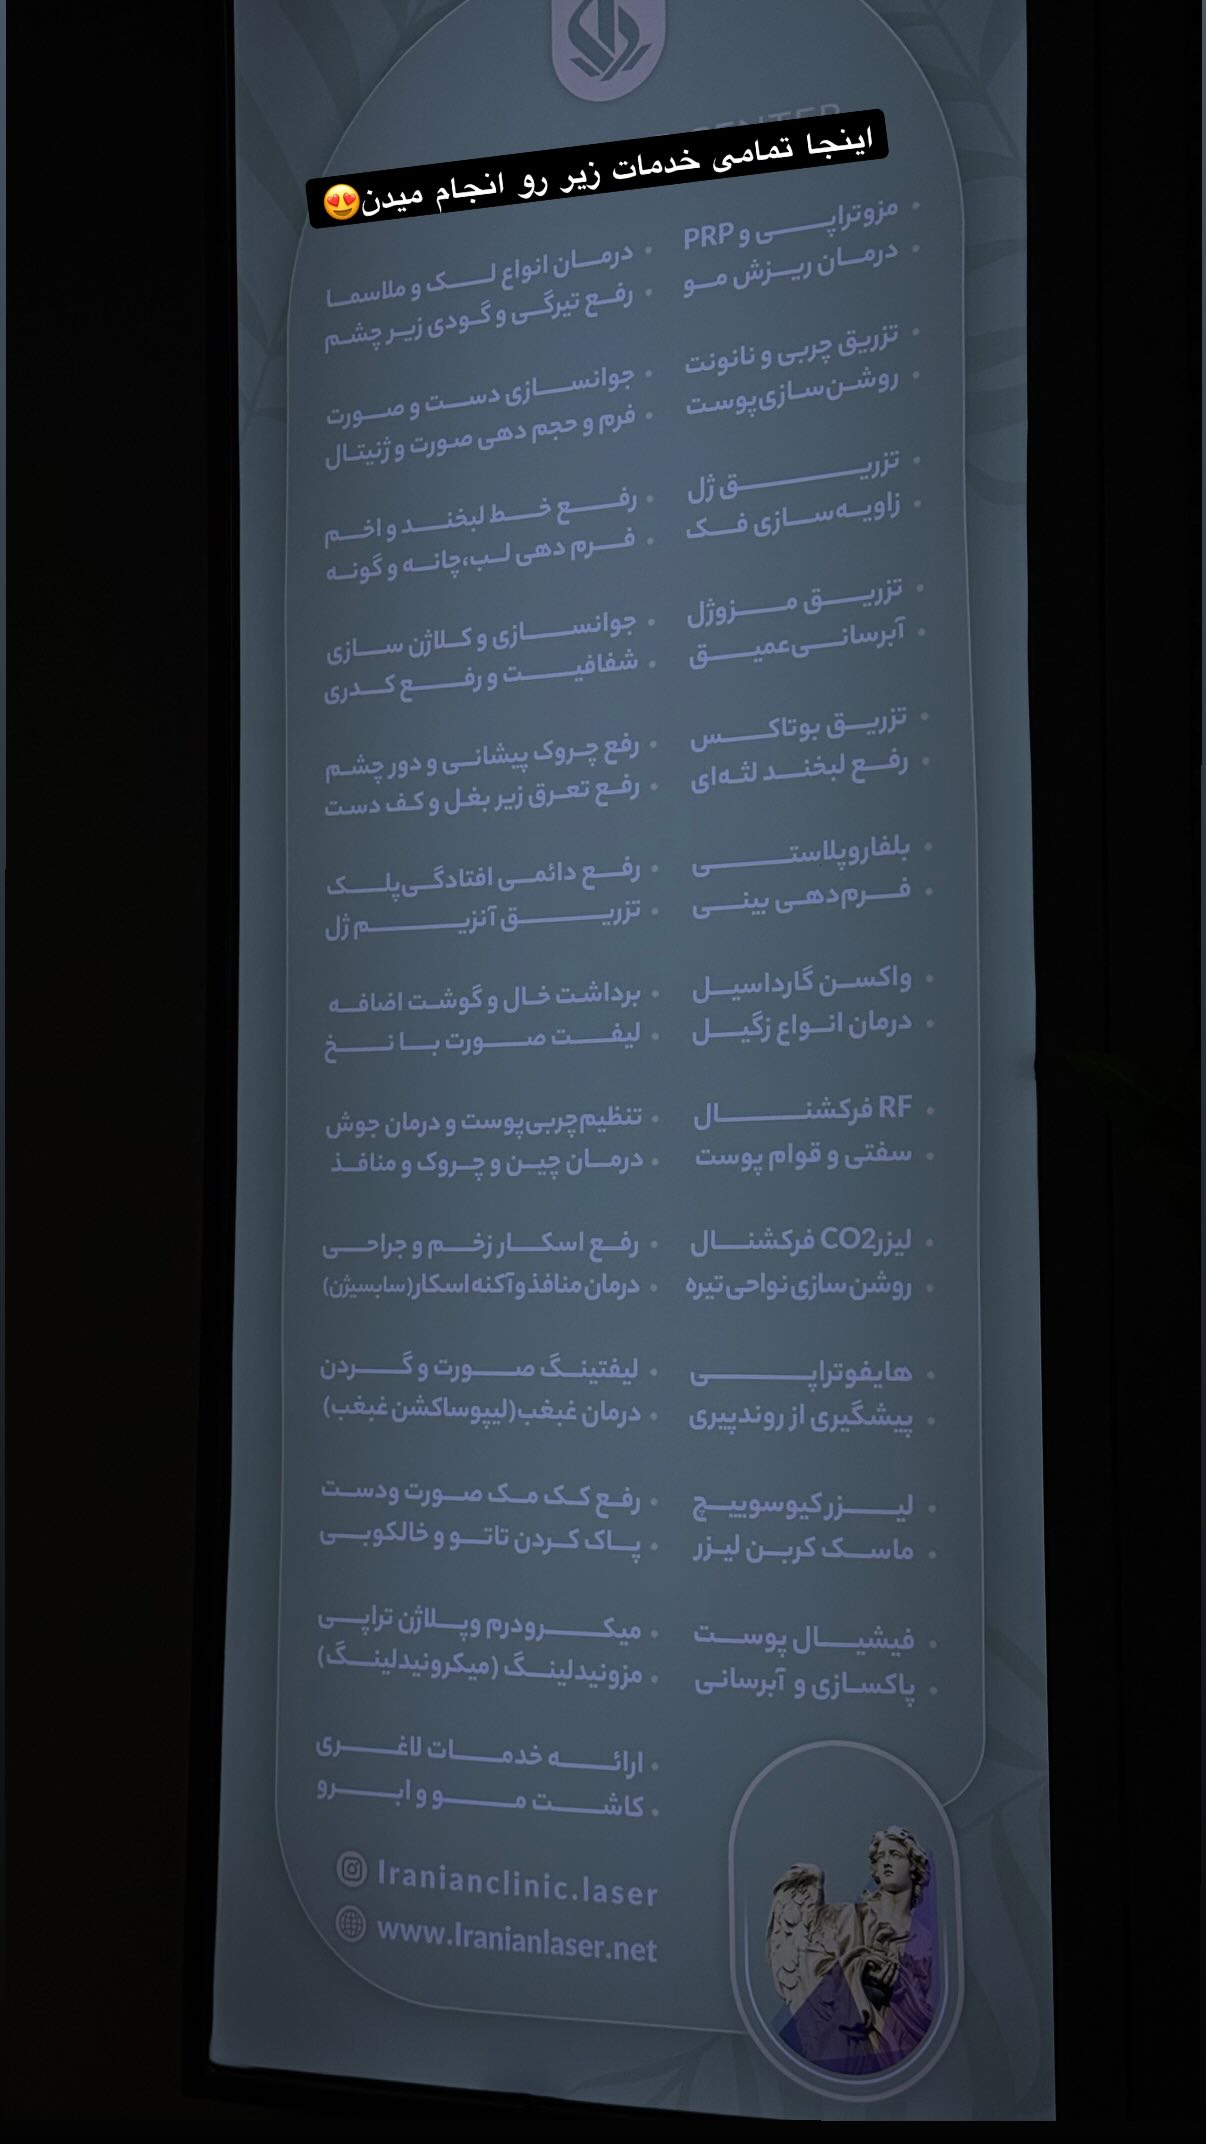 CENTER
اینجا تمامی خدمات زیر رو انجام میدن😍
مزوتراپی و PRP
درمان ریزش مو
درمان انواع لک و ملاسما
رفع تیرگی و گودی زیر چشم
تزریق چربی و نانونت
روشن‌سازی پوست
جوانسازی دست و صورت
فرم و حجم دهی صورت و ژنیتال
تزریق ژل
زاویه سازی فک
رفع خط لبخند و اخم
فرم دهی لب،چانه و گونه
تزریق مزوژل
آبرسانی عمیق
جوانسازی و کلاژن سازی
شفافیت و رفع کدری
تزریق بوتاکس
رفع لبخند لثه‌ای
رفع چروک پیشانی و دور چشم
رفع تعرق زیر بغل و کف دست
بلفاروپلاستی
فرم‌دهی بینی
رفع دائمی افتادگی پلک
تزریق آنزیم ژل
واکسن گارداسیل
درمان انواع زگیل
برداشت خال و گوشت اضافه
لیفت صورت با نخ
RF فرکشنال
سفتی و قوام پوست
تنظیم چربی پوست و درمان جوش
درمان چین و چروک و منافذ
لیزر CO2 فرکشنال
روشن سازی نواحی تیره
رفع اسکار زخم و جراحی
درمان منافذ و آکنه اسکار(سابسیژن)
هایفوتراپی
پیشگیری از روند پیری
لیفتینگ صورت و گردن
درمان غبغب(لیپوساکشن غبغب)
لیزر کیوسوییچ
ماسک کربن لیزر
رفع کک مک صورت ودست
پاک کردن تاتو و خالکوبی
فیشیال پوست
پاکسازی و آبرسانی
میکرودرم وپلاژن تراپی
مزونیدلینگ (میکرونیدلینگ)
ارائه خدمات لاغری
کاشت مو و ابرو
Iranianclinic.laser
www.Iranianlaser.net